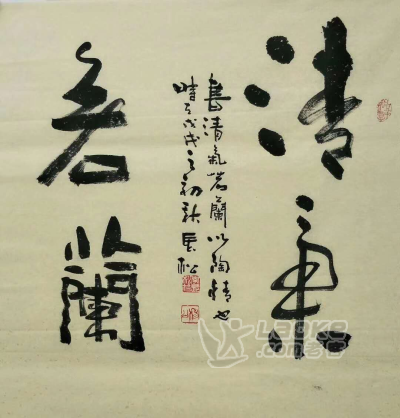 清氣
若蘭
書清氣若蘭以陶情也
時戊戌之初秋松